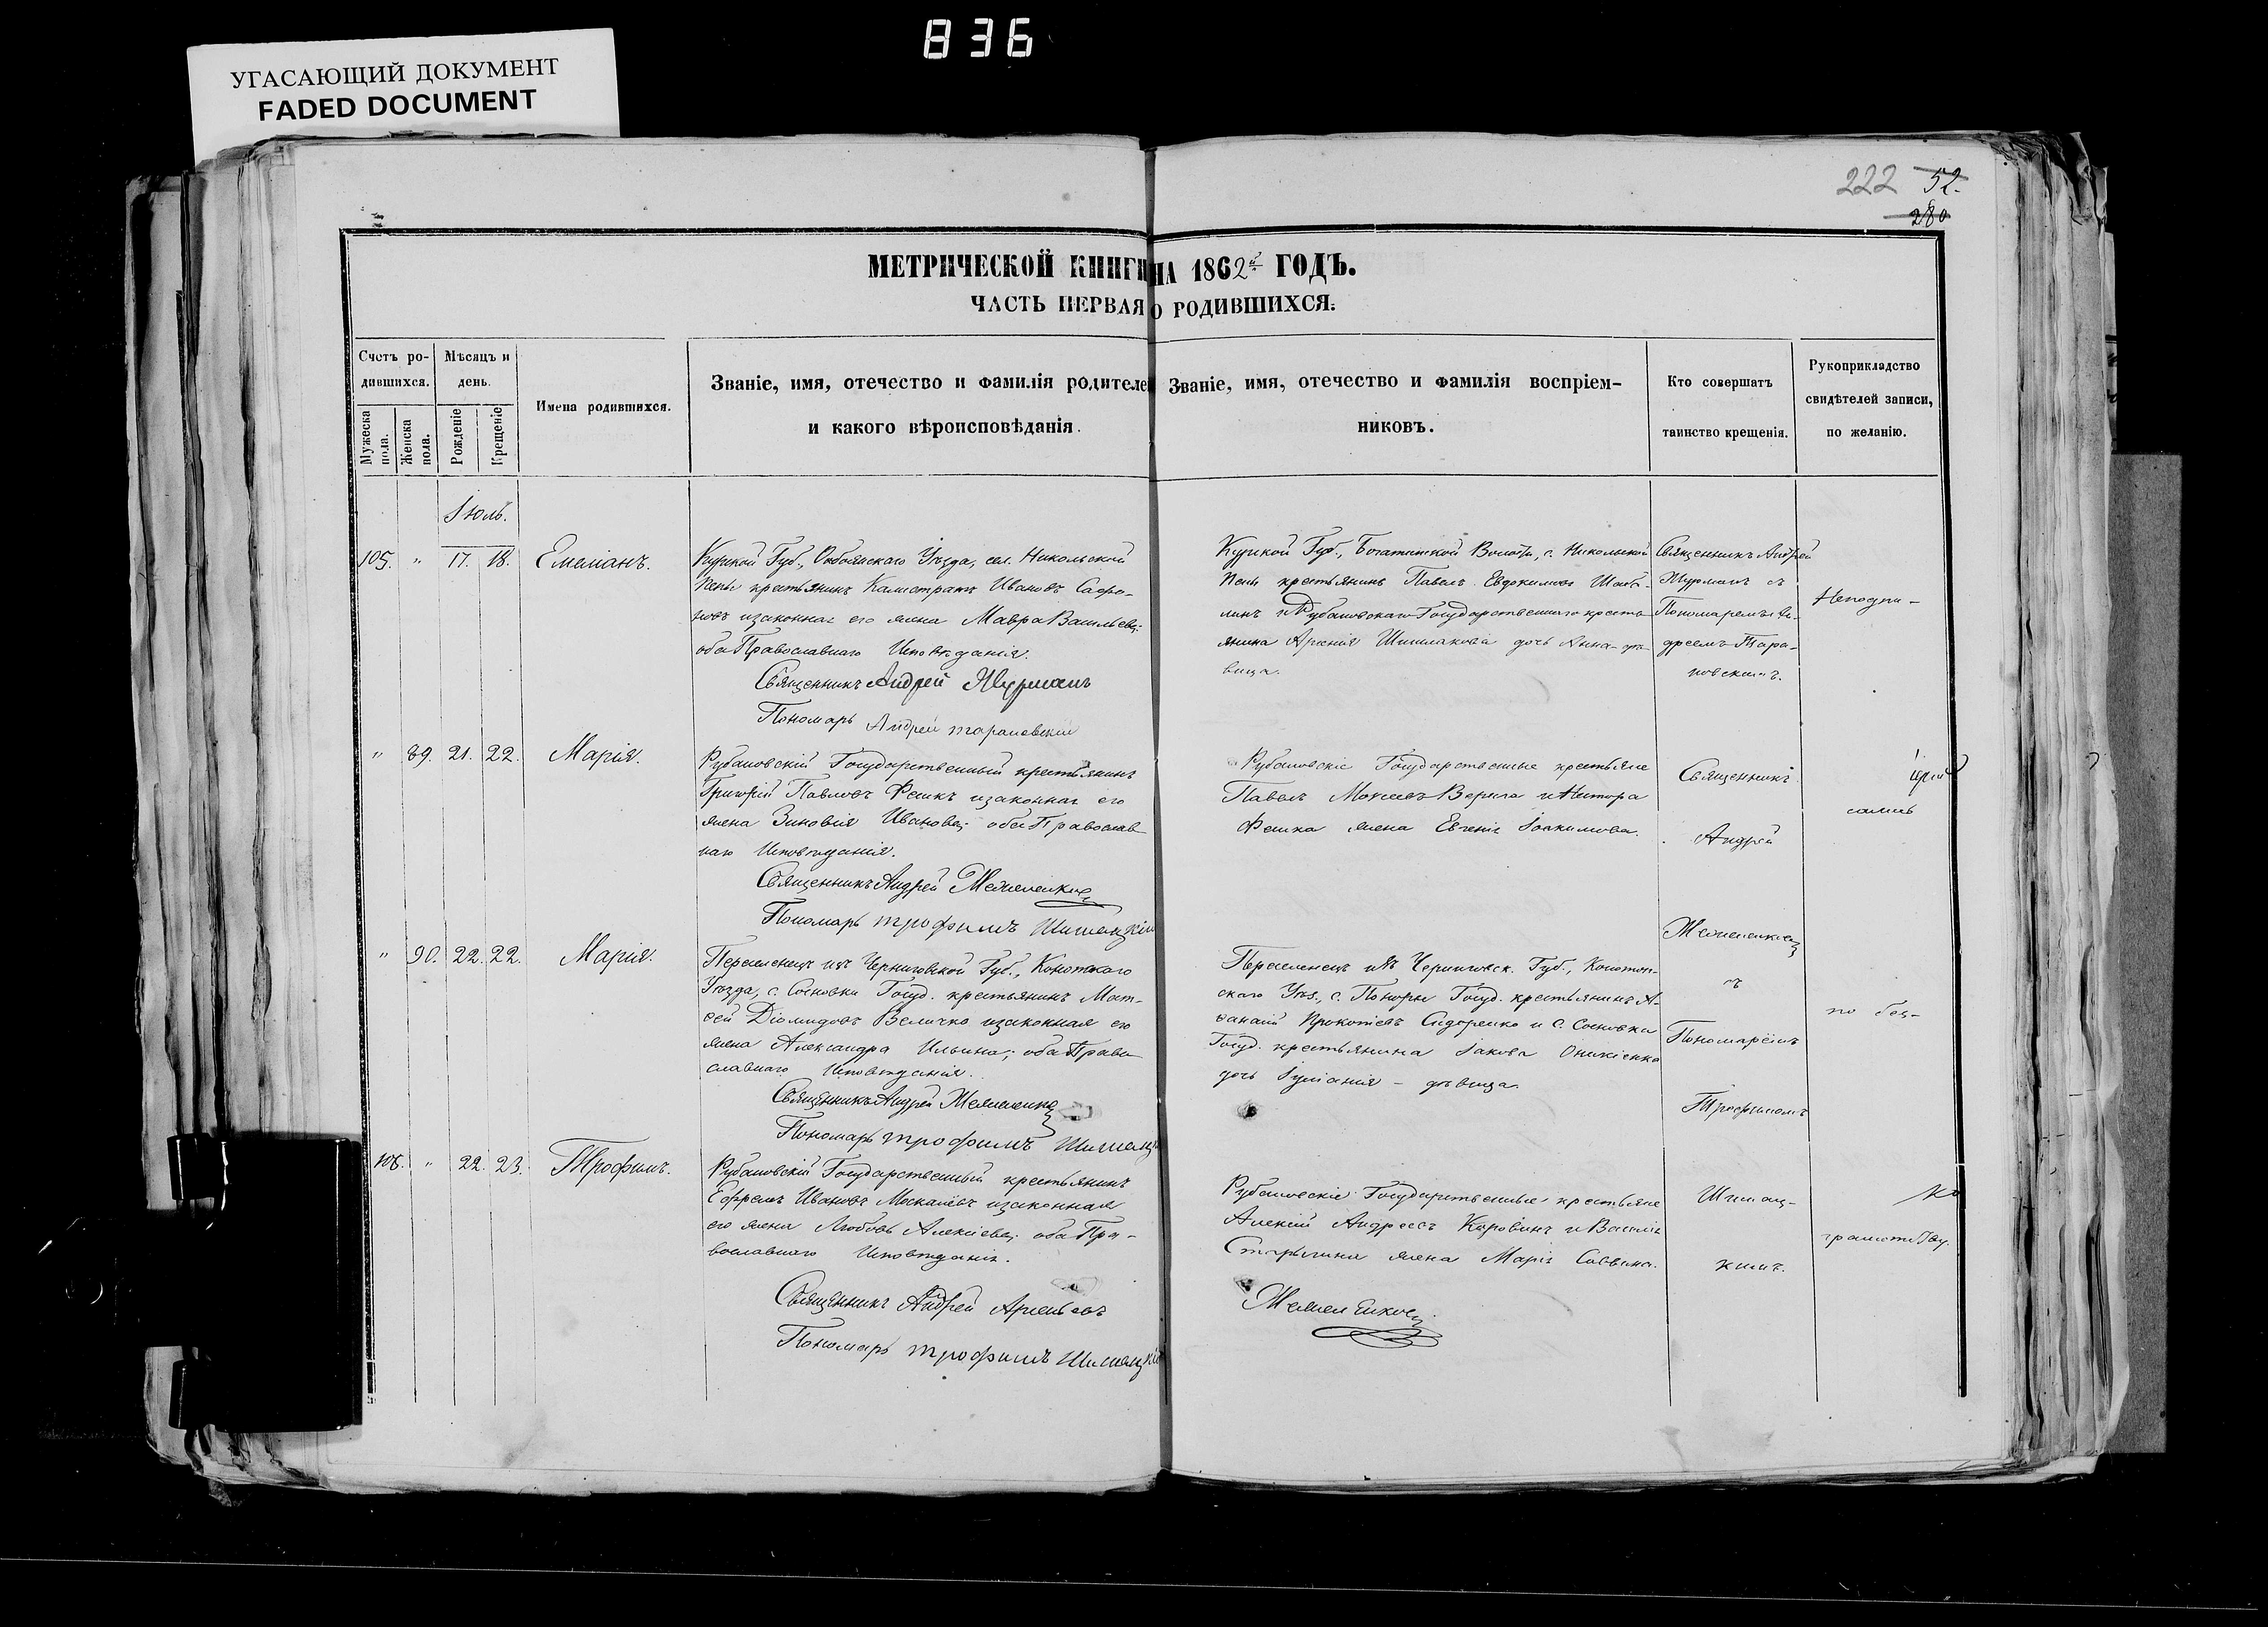 836
УГАСАЮЩИЙ ДОКУМЕНТ
FADED DOCUMENT
222 52.
280
МЕТРИЧЕСКОЙ КНИГИ НА 1862й ГОДЪ.
ЧАСТЬ ПЕРВАЯ О РОДИВШИХСЯ.
Счетъ ро-
дившихся.
Мужеска пола.
Женска пола.
Мѣсяцъ и
день.
Рожденіе
Крещеніе
Имена родившихся.
Званіе, имя, отечество и фамилія родителей
и какого вѣроисповѣданія.
Званіе, имя, отечество и фамилія воспріем-
никовъ.
Кто совершатъ
таинство крещенія.
Рукоприкладство
свидѣтелей записи,
по желанію.
Іюль.
105. " 17. 18. Емеліанъ.
Курской Губ., Обоянскаго Уѣзда, сел. Никольской
Пены крестьянинъ Калистратъ Ивановъ Сафо-
новъ и законная его жена Мавра Васильева;
оба Православнаго Исповѣданія.
Священникъ Андрей Журманъ
Пономарь Андрей Тарановскій
Курской Губ., Богатинской Волости, с. Никольской
Пены крестьянинъ Павелъ Евдокимовъ
и Рубановскаго Государственнаго кресть-
янина Арсенія Шишлакова дочь Анна-дѣ-
вица.
Священникъ Андрей
Журманъ съ
Пономаремъ Ан-
дреемъ Тара-
новскимъ.
" 89. 21. 22. Марія.
Рубановскій Государственный крестьянинъ
Григорій Павловъ Фешкъ и законная его
жена Зиновія Иванова; оба Православ-
наго Исповѣданія.
Священникъ Андрей
Пономарь Трофимъ Шишацкій
Рубановскіе Государственные крестьяне
Павелъ Моисеевъ и
Фешка жена Евгенія Іоакимова.
Священникъ
Андрей
" 90. 22. 22. Марія.
Переселенецъ изъ Черниговской Губ., Конотопскаго
Уѣзда, с. Сосновки Госуд. крестьянинъ Мат-
ѳей Діомидовъ Величко и законная его
жена Александра Ильина; оба Право-
славнаго Исповѣданія.
Священникъ Андрей
Пономарь Трофимъ Шишацкій
Переселенецъ изъ Черниговск. Губ., Конотоп-
скаго Уѣз., с. Поноры Госуд. крестьянинъ А-
ѳанасій Прокопіевъ Сидоренко и с. Сосновки
Госуд. крестьянина Іакова Оникіенко
дочь Іуліанія - дѣвица.
съ
Пономаремъ
Трофимомъ
по без-
106. " 22. 23. Трофимъ.
Рубановскій Государственный крестьянинъ
Ефремъ Ивановъ Москалевъ и законная
его жена Любовь Алексіева; оба Пра-
вославнаго Исповѣданія.
Священникъ Андрей Арсеньевъ
Пономарь Трофимъ Шишацкій
Рубановскіе Государственные крестьяне
Алексій Андреевъ Каровинъ и Василія
жена Марія Саввина.
Шишац-
кимъ.